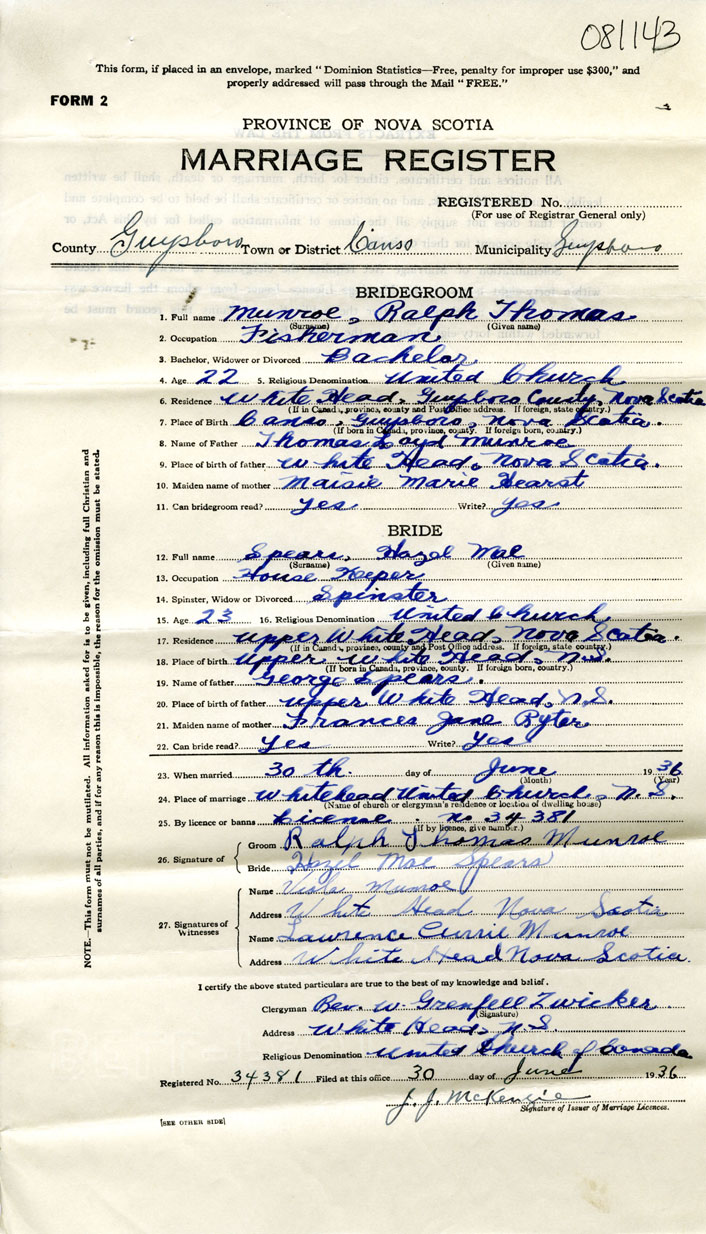 081143
This form, if placed in an envelope, marked "Dominion Statistics—Free, penalty for improper use $300," and
properly addressed will pass through the Mail "FREE."
FORM 2
PROVINCE OF NOVA SCOTIA
MARRIAGE REGISTER
REGISTERED No.
(For use of Registrar General only)
County Guysboro Town or District Canso Municipality Guysboro
BRIDEGROOM
1. Full name Munroe, Ralph Thomas
(Surname) (Given name)
2. Occupation Fisherman
3. Bachelor, Widower or Divorced Bachelor
4. Age 22 5. Religious Denomination United Church
6. Residence White Head, Guysboro County, Nova Scotia
(If in Canada, province, county and Post Office address. If foreign, state country.)
7. Place of Birth Canso, Guysboro, Nova Scotia.
(If born in Canada, province, county. If foreign born, country.)
8. Name of Father Thomas Loyd Munroe
9. Place of birth of father White Head, Nova Scotia.
10. Maiden name of mother Maisie Marie Hearst
11. Can bridegroom read? Yes Write? Yes
BRIDE
12. Full name Spears, Hazel Mae
(Surname) (Given name)
13. Occupation House Keeper
14. Spinster, Widow or Divorced Spinster
15. Age 23 16. Religious Denomination United Church
17. Residence Upper White Head, Nova Scotia.
(If in Canada, province, county and Post Office address. If foreign, state country.)
18. Place of birth Upper White Head, N.S.
(If born in Canada, province, county. If foreign born, country.)
19. Name of father George Spears.
20. Place of birth of father Upper White Head, N.S.
21. Maiden name of mother Frances Jane Ryter
22. Can bride read? Yes Write? Yes
23. When married 30 th. day of June 1936
(Month) (Year)
24. Place of marriage Whitehead United Church, N.S.
(Name of church or clergyman's residence or location of dwelling house)
25. By licence or banns License. no 34381
(If by licence, give number.)
26. Signature of Groom Ralph Thomas Munroe
Bride Hazel Mae Spears
27. Signatures of Witnesses Name Viola Munroe
Address White Head Nova Scotia
Name Lawrence Currie Munroe
Address White Head Nova Scotia.
I certify the above stated particulars are true to the best of my knowledge and belief.
Clergyman Rev. W. Grenfell Zwicker
(Signature)
Address White Head, N.S
Religious Denomination United Church of Canada
Registered No. 34381 Filed at this office 30 day of June 1936
J. J. McKenzie
Signature of Issuer of Marriage Licences.
[SEE OTHER SIDE]
NOTE.—This form must not be mutilated. All information asked for is to be given, including full Christian and
surnames of all parties, and if for any reason this is impossible, the reason for the omission must be stated.